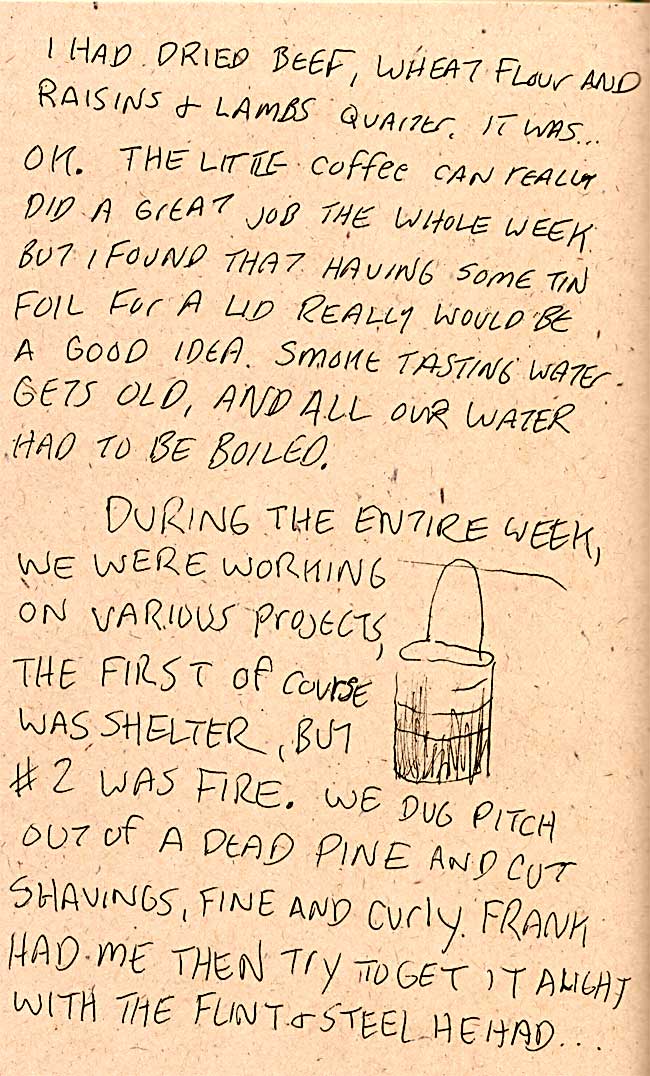 I HAD DRIED BEEF, WHEAT FLOUR AND
RAISINS & LAMBS QUARTER. IT WAS...
OK. THE LITTLE COFFEE CAN REALLY
DID A GREAT JOB THE WHOLE WEEK
BUT I FOUND THAT HAVING SOME TIN
FOIL FOR A LID REALLY WOULD BE
A GOOD IDEA. SMOKE TASTING WATER
GETS OLD, AND ALL OUR WATER
HAD TO BE BOILED.
DURING THE ENTIRE WEEK,
WE WERE WORKING
ON VARIOUS PROJECTS,
THE FIRST OF COURSE
WAS SHELTER, BUT
#2 WAS FIRE. WE DUG PITCH
OUT OF A DEAD PINE AND CUT
SHAVINGS, FINE AND CURLY. FRANK
HAD ME THEN TRY TO GET IT ALIGHT
WITH THE FLINT & STEEL HE HAD...